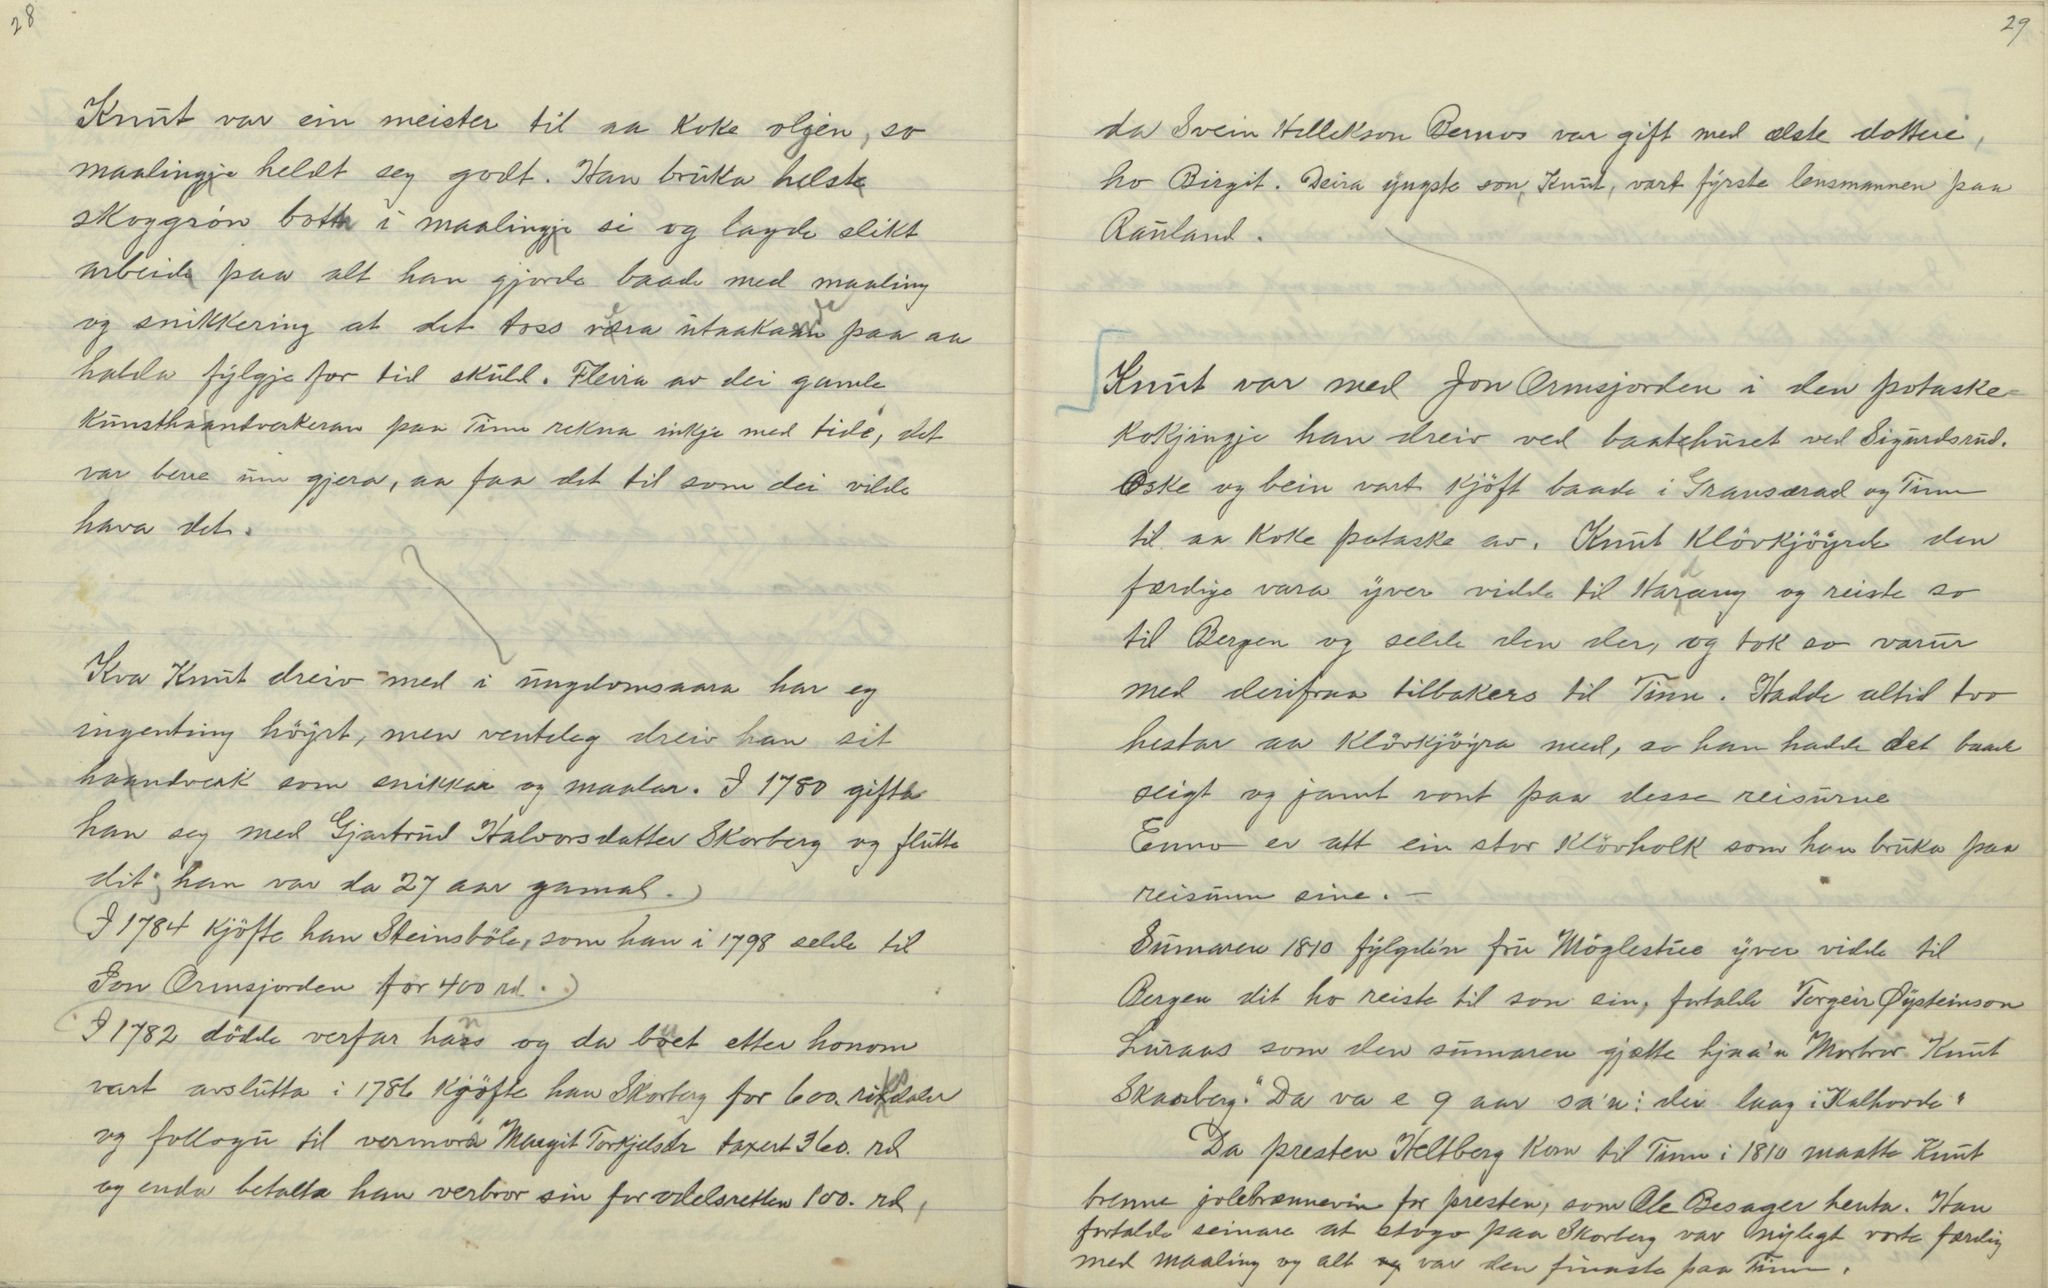 28
Knut var ein meister til aa koke oljen, so
maalingje heldt seg godt. Han bruka helste
skoggrön bott i maalingje si og lagde slikt
arbeide paa alt han gjorde baade med maaling
og snikkering at det toss væra utaakanje paa aa
halda fylgje for tid skuld. Fleira av dei gamle
kunsthaandverkeran paa Tinn rekna inkje med tidé, det
var berre um gjera, aa faa det til som dei vilde
hava det.
Kva Knut dreiv med i ungdomsaara har eg
ingenting höyrt, men venteleg dreiv han sit
haandverk som snikkar og maalar. I 1780 gifta
han seg med Gjartrud Halvorsdatter Skorberg og flutte
dit; han var da 27 aar gamal.)
(I 1784 kjöfte han Steinsböle, som han i 1798 selde til
Jon Ormsjorden for 400 rd.)
I 1782 dödde verfar hans og da buet etter honom
vart avslutta i 1786 kjöfte han Skorberg for 600. riksdaler
og follogu til vermora Margit Torkjelsdr taxert 360. rd
og enda betalte han verbror sin for odelsretten 100. rd,
29
da Svein Hellekson Bernos var gift med elste dottere,
ho Birgit. Deira yngste son, Knut, vart fyrste lensmannen paa
Rauland.
Knut var med Jon Ormsjorden i den potaske-
kokjingje han dreiv ved baatehuset ved Sigurdsrud.
Oske og bein vart kjöft baade i Gransærad og Tinn
til aa koke potaske av. Knut klövkjöyrde den
færdige vara yver vidde til Harang og reiste so
til Bergen og selde den der, og tok so varur
med derifraa tilbakers til Tinn. Hadde altid tvo
hestar aa klövkjöyra med, so han hadde det baade
seigt og jamt vont paa desse reisurne
Enno er att ein stor klövholk som han bruka paa
reisunn sine. —
Sumaren 1810 fylgde'n fru Möglestue yver vidde til
Bergen dit ho reiste til son sin, fortalde Torgeir Øysteinson
Luraas som den sumaren gjætte hjaa'n Morbror Knut
Skaarberg. "Da va e 9 aar sa'n: dei laag i Kalhovde"
Da presten Heltberg kom til Tinn i 1810 maatte Knut
brenne jolebrænnevin for presten, som Ole Besager henta. Han
fortalde seinare at stogo paa Skorberg var nylegt vorte færdig
med maaling og alt og var den finaste paa Tinn.